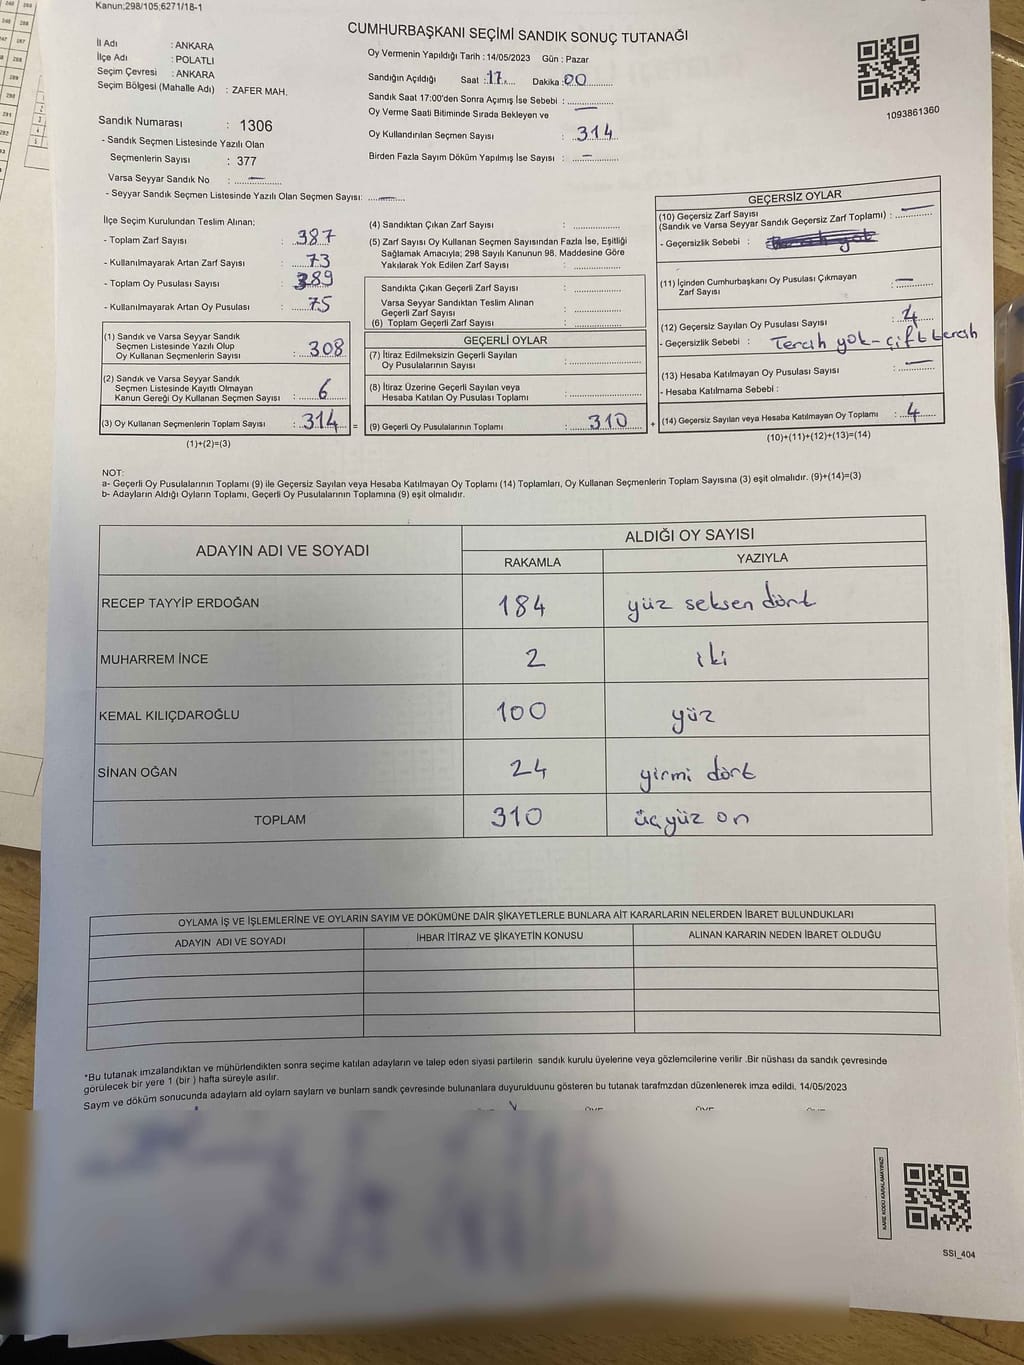 Kanun;298/105;6271/18-1
CUMHURBAŞKANI SEÇİMİ SANDIK SONUÇ TUTANAĞI
İl Adı : ANKARA
İlçe Adı : POLATLI
Seçim Çevresi : ANKARA
Seçim Bölgesi (Mahalle Adı) : ZAFER MAH.
Sandık Numarası : 1306
- Sandık Seçmen Listesinde Yazılı Olan
Seçmenlerin Sayısı : 377
Varsa Seyyar Sandık No : —
- Seyyar Sandık Seçmen Listesinde Yazılı Olan Seçmen Sayısı: —
Oy Vermenin Yapıldığı Tarih : 14/05/2023 Gün : Pazar
Sandığın Açıldığı Saat : 17 Dakika : 00
Sandık Saat 17:00'den Sonra Açımış İse Sebebi :
Oy Verme Saati Bitiminde Sırada Bekleyen ve —
Oy Kullandırılan Seçmen Sayısı : 314
Birden Fazla Sayım Döküm Yapılmış İse Sayısı : —
1093861360
İlçe Seçim Kurulundan Teslim Alınan;
- Toplam Zarf Sayısı : 387
- Kullanılmayarak Artan Zarf Sayısı : 73
- Toplam Oy Pusulası Sayısı : 389
- Kullanılmayarak Artan Oy Pusulası : 75
(1) Sandık ve Varsa Seyyar Sandık
Seçmen Listesinde Yazılı Olup
Oy Kullanan Seçmenlerin Sayısı : 308
(2) Sandık ve Varsa Seyyar Sandık
Seçmen Listesinde Kayıtlı Olmayan
Kanun Gereği Oy Kullanan Seçmen Sayısı : 6
(3) Oy Kullanan Seçmenlerin Toplam Sayısı : 314 =
(1)+(2)=(3)
(4) Sandıktan Çıkan Zarf Sayısı :
(5) Zarf Sayısı Oy Kullanan Seçmen Sayısından Fazla İse, Eşitliği
Sağlamak Amacıyla; 298 Sayılı Kanunun 98. Maddesine Göre
Yakılarak Yok Edilen Zarf Sayısı :
Sandıkta Çıkan Geçerli Zarf Sayısı :
Varsa Seyyar Sandıktan Teslim Alınan
Geçerli Zarf Sayısı :
(6) Toplam Geçerli Zarf Sayısı :
GEÇERLİ OYLAR
(7) İtiraz Edilmeksizin Geçerli Sayılan
Oy Pusulalarının Sayısı :
(8) İtiraz Üzerine Geçerli Sayılan veya
Hesaba Katılan Oy Pusulası Toplamı :
(9) Geçerli Oy Pusulalarının Toplamı : 310 +
GEÇERSİZ OYLAR
(10) Geçersiz Zarf Sayısı
(Sandık ve Varsa Seyyar Sandık Geçersiz Zarf Toplamı) : —
- Geçersizlik Sebebi :
(11) İçinden Cumhurbaşkanı Oy Pusulası Çıkmayan
Zarf Sayısı : —
(12) Geçersiz Sayılan Oy Pusulası Sayısı : 4
- Geçersizlik Sebebi : Tercih yok - çift tercih
(13) Hesaba Katılmayan Oy Pusulası Sayısı : —
- Hesaba Katılmama Sebebi :
(14) Geçersiz Sayılan veya Hesaba Katılmayan Oy Toplamı : 4
(10)+(11)+(12)+(13)=(14)
NOT:
a- Geçerli Oy Pusulalarının Toplamı (9) ile Geçersiz Sayılan veya Hesaba Katılmayan Oy Toplamı (14) Toplamları, Oy Kullanan Seçmenlerin Toplam Sayısına (3) eşit olmalıdır. (9)+(14)=(3)
b- Adayların Aldığı Oyların Toplamı, Geçerli Oy Pusulalarının Toplamına (9) eşit olmalıdır.
ADAYIN ADI VE SOYADI
ALDIĞI OY SAYISI
RAKAMLA YAZIYLA
RECEP TAYYİP ERDOĞAN 184 yüz seksen dört
MUHARREM İNCE 2 iki
KEMAL KILIÇDAROĞLU 100 yüz
SİNAN OĞAN 24 yirmi dört
TOPLAM 310 üçyüz on
OYLAMA İŞ VE İŞLEMLERİNE VE OYLARIN SAYIM VE DÖKÜMÜNE DAİR ŞİKAYETLERLE BUNLARA AİT KARARLARIN NELERDEN İBARET BULUNDUKLARI
ADAYIN ADI VE SOYADI İHBAR İTİRAZ VE ŞİKAYETİN KONUSU ALINAN KARARIN NEDEN İBARET OLDUĞU
*Bu tutanak imzalandıktan ve mühürlendikten sonra seçime katılan adayların ve talep eden siyasi partilerin sandık kurulu üyelerine veya gözlemcilerine verilir .Bir nüshası da sandık çevresinde
görülecek bir yere 1 (bir ) hafta süreyle asılır.
Saym ve döküm sonucunda adaylarm ald oylarn saylarn ve bunlarn sandk çevresinde bulunanlara duyurulduunu gösteren bu tutanak tarafmzdan düzenlenerek imza edildi. 14/05/2023
KARE KODU KARALAMAYINIZ!
SSI_404